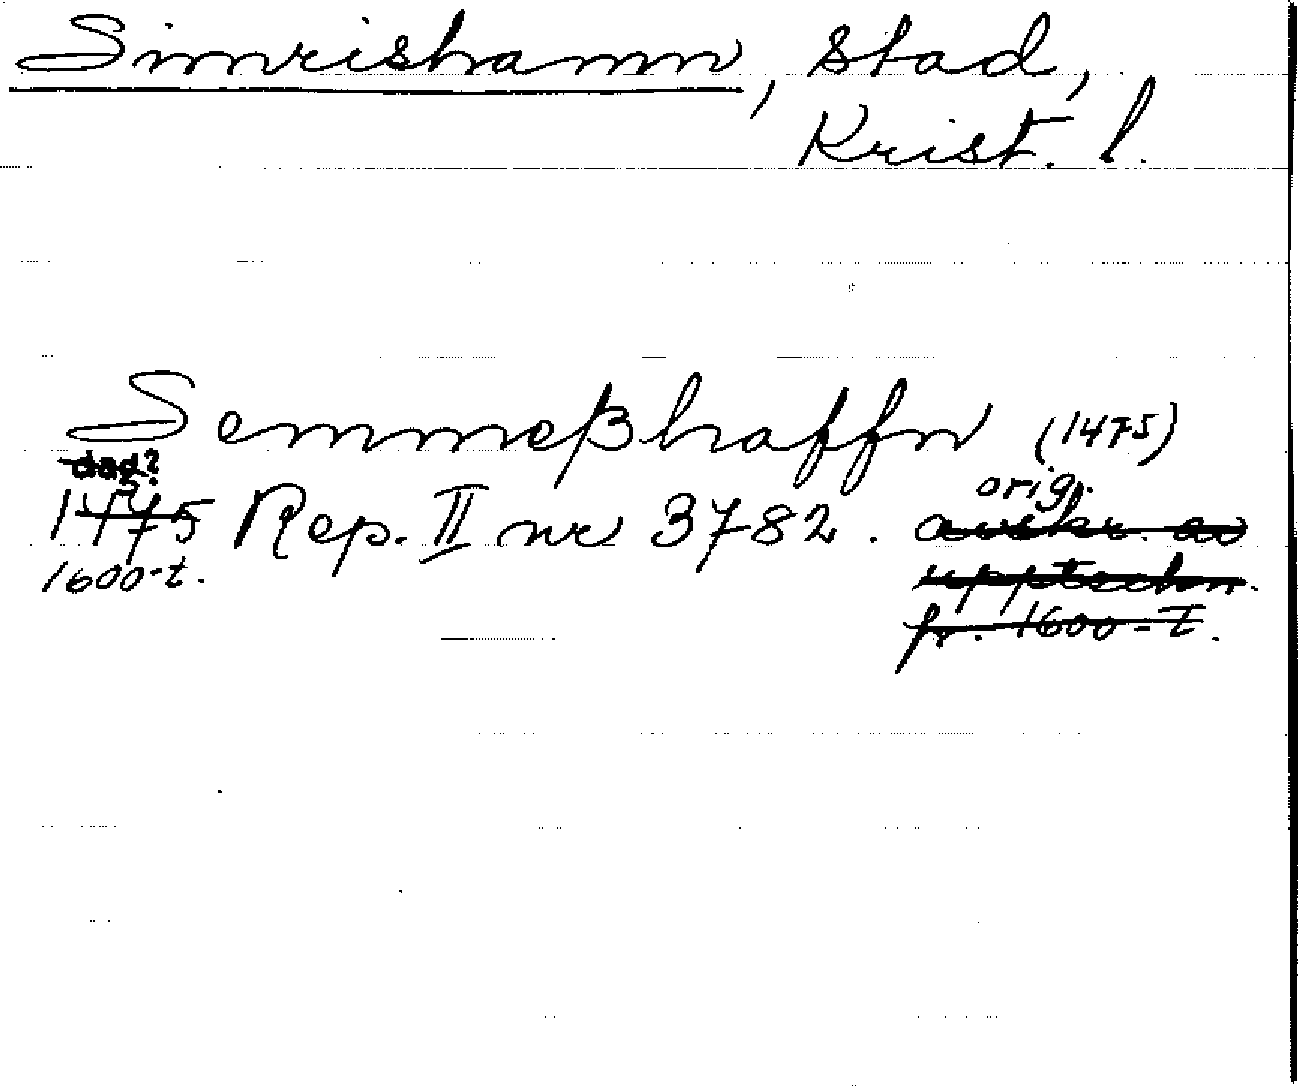 Simrishamn, stad,
Krist. l.
Semmeßhaffn (1475)
dag?
orig.
1475 Rep. II nr 3782. avskr. av
1600-t. upptechn.
fr. 1600-t.